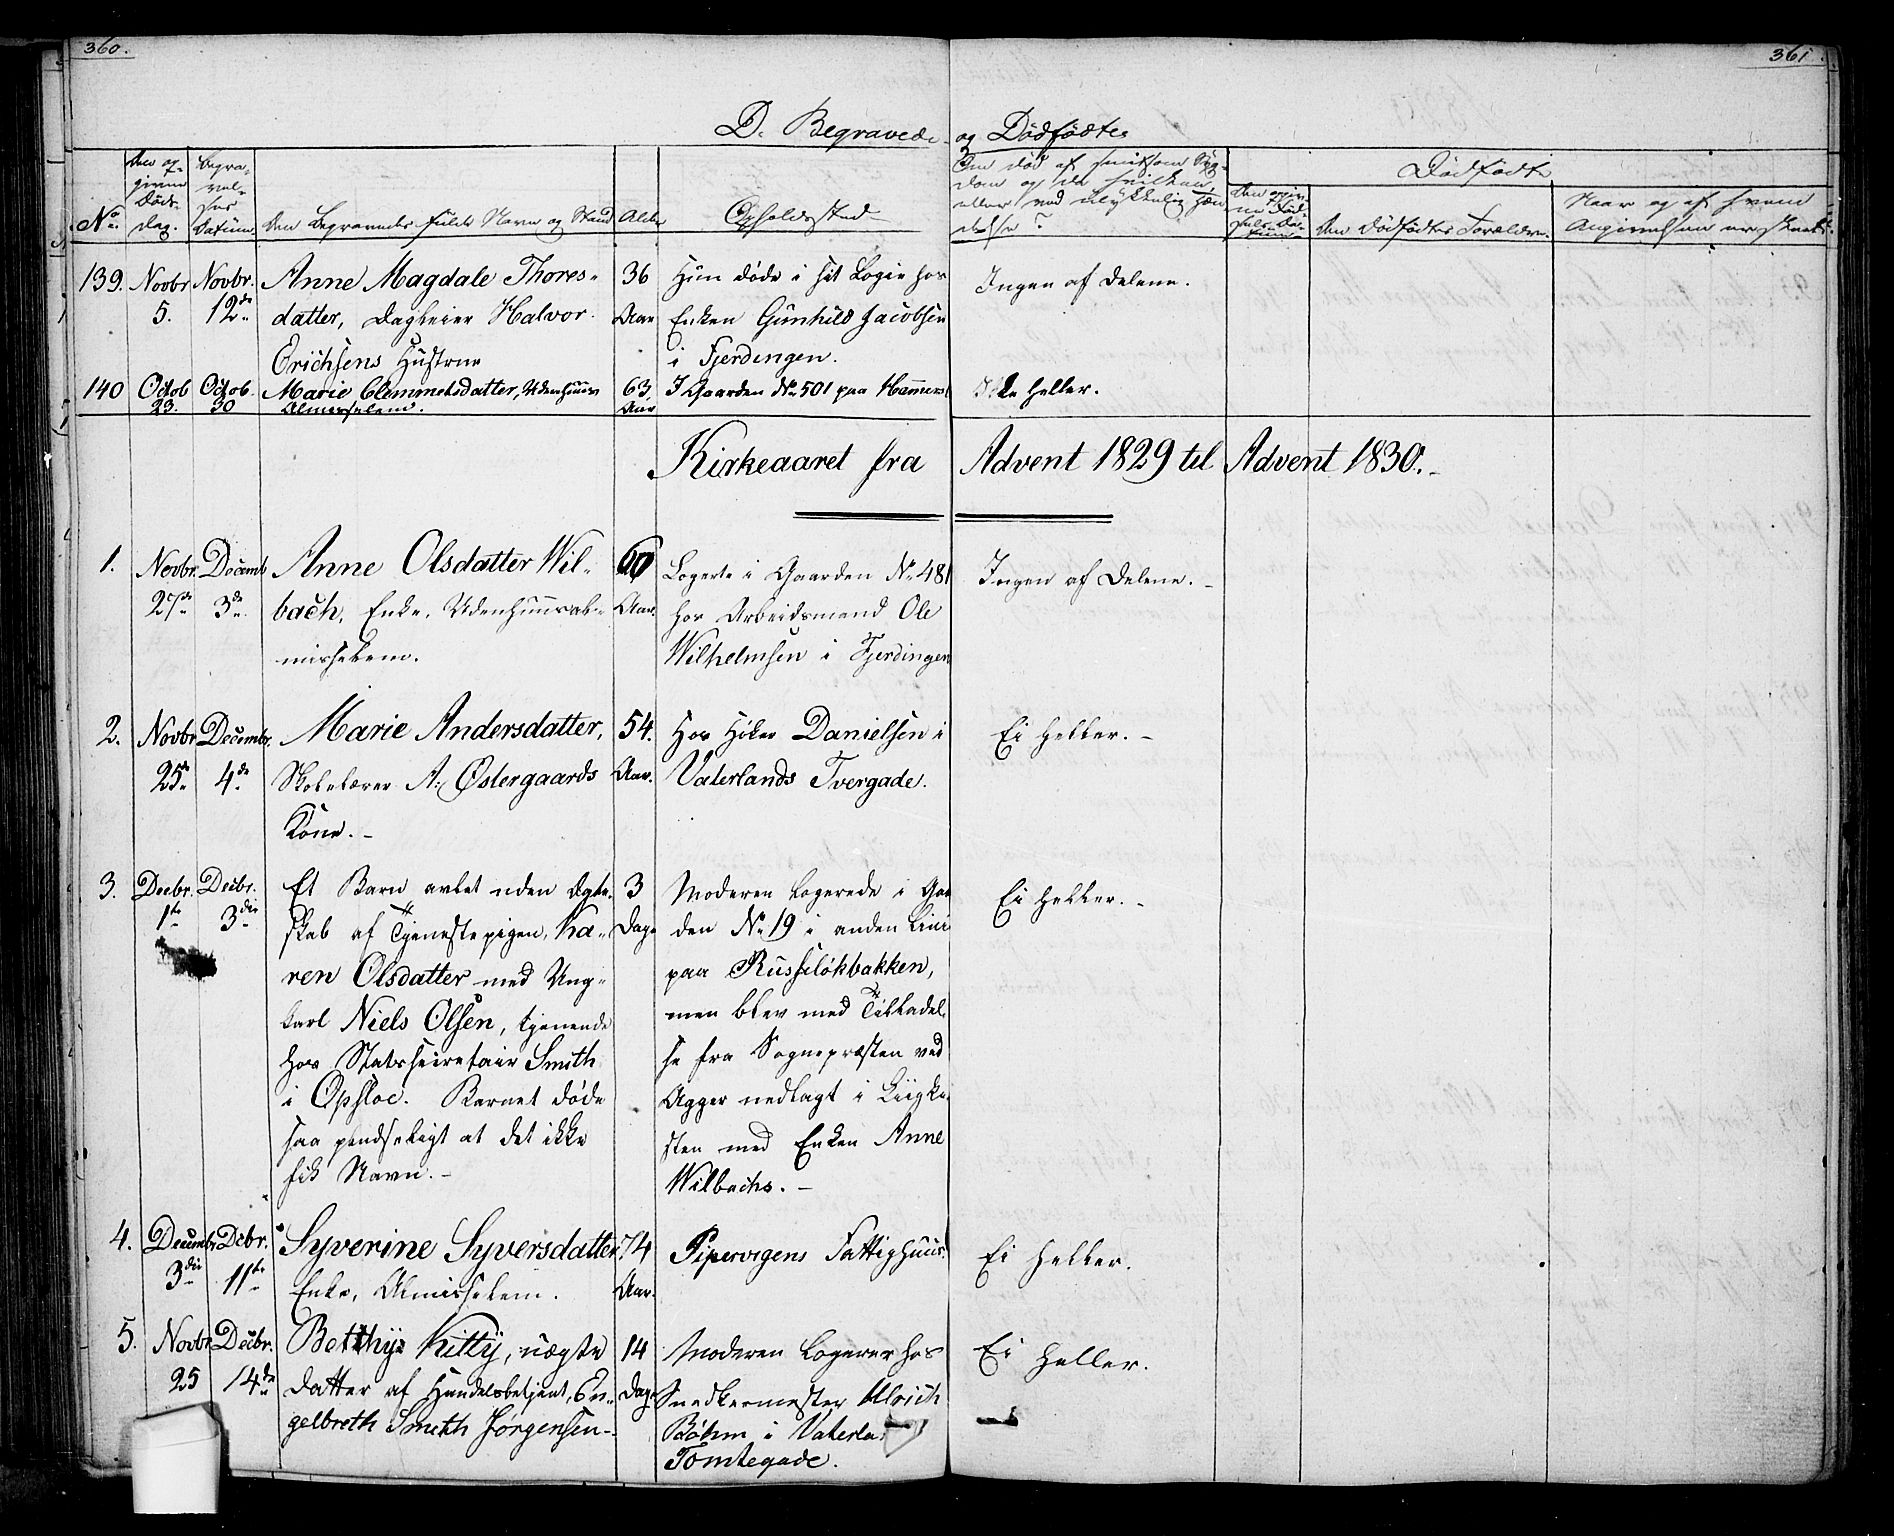 360.
361.
D. Begravede og Dødfødte
No.
Den opgivne Døds-dag.
Begravelses Datum
Den Begravedes fulde Navn og Stand
Alder
Opholdssted
Om død af smitsom Sygdom og da hvilken, eller ved ulykkelig Hændelse?
Dødfødte
Den Dødfødtes Forældre.
Naar og af hvem Angivelsen er skeet.
139. Novbr 5. Novbr. 12de
Anne Magdale Thores-
datter, Dagleier Halvor
Erichsens Hustrue
36 Aar
Hun døde i sit Logie hos
Enken Gunhild Jacobsen
i Fjerdingen.
Ingen af Delene.
140 Octob 23. Octob. 30
Marie Clemmetsdatter, Udenhuus
Almisselem.
63 Aar
I Gaarden No 501 paa Hammers
Ikke heller.
Kirkeaaret fra Advent 1829 til Advent 1830.
1. Novbr. 27de Decemb 3de
Anne Olsdatter Wil-
bach, Enke, Udenhuusal-
misselem.
60 Aar.
Logerte i Gaarden No 481
hos Arbeidsmand Ole
Wilhelmsen i Fjerdingen
Ingen af Delene.
2. Novbr 25de Decembr. 4de
Marie Andersdatter,
Skolelærer A: Østergaards
Kone.
54. Aar.
Hos Høker Danielsen i
Vaterlands Tvergade.
Ei heller.
3. Decbr. 1te Decbr. 3die
Et Barn avlet uden Ægte-
skab af Tjenestepigen, Ka-
ren Olsdatter med Ung-
karl Niels Olsen, tjenende
hos Statssecretair Smith
i Opsloe. Barnet døde
saa pludseligt at det ikke
fik Navn.
3 Dage
Moderen logerede i Gaa
den No 19 i anden Linie
paa Russeløkbakken,
men blev med Tilladel
se fra Sognepræsten ved
Agger nedlagt i Liigki
sten med Enken Anne
Wilbachs.
Ei heller.
4. Decembr 3die Decbr. 11te
Syverine Syversdatter
Enke, Almisselem.
74 Aar.
Pipervigens Fattighuus.
Ei heller.
5. Novbr 25 Decbr. 14de
Betthy Kitty, uægte
Datter af Handelsbetjent, En-
gelbreth Smith Jørgensen
14 Dage
Moderen logerer hos
Snedkermester Ulrich
Bøhm i Vaterla
Tomtegade.
Ei heller.